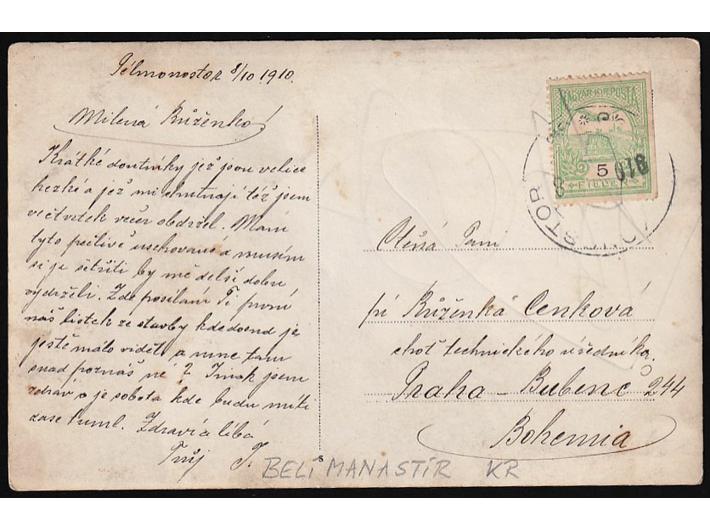 Pélmonostor 8/10 1910.
Milená Růženko!
Krátké doutníky jež jsou velice
hezké a jež mi chutnají též jsem
ve čtvrtek večer obdržel. Mám
tyto pečlivě uschované a musím
si je šetřiti by mě delší dobu
vydrželi. Zde posílám Ti první
náš lístek ze stavby kde dosud je
ještě málo vidět a mne tam
snad poznáš né? Jinak jsem
zdráv a je sobota kde budu míti
zase Zdraví a líbá
Tvůj F.
MAGYAR KIR. POSTA
5
STOR
910
Ctěná Paní
pí Růženka Cenková
choť technického úředníka
Praha - Bubenč 244
Bohemia
BELI MANASTIR KR